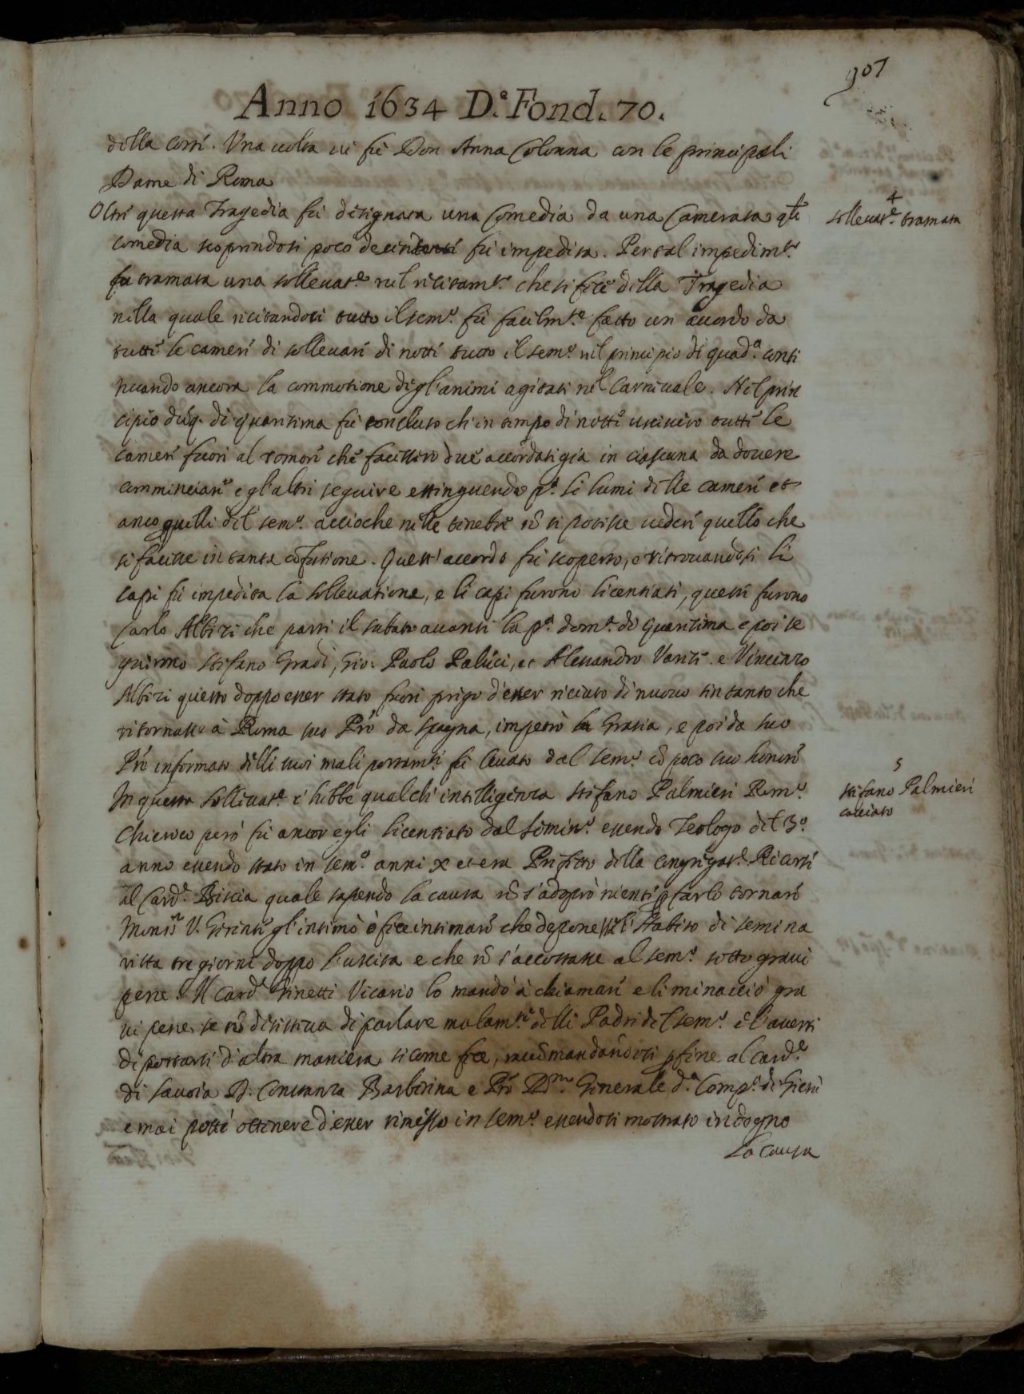 907
Anno 1634 D.ª Fond. 70.
della corte. Una volta vi fù Don Anna Colonna con le principali
Dame di Roma
Oltre questa Tragedia fù disignata una Comedia da una Camerata q.ta
4
sollevat.e tramata
comedia scoprindosi poco fù impedita. Per tal impedim.to
fu tramata una sollevat.e nel recitam.to che si fece della Tragedia
nella quale recitandosi tutto il sem.o fù facilm.te fatto un acordo da
tutte le camere di sollevare di notte tutto il sem.o nel principio di quad.a conti
nuando ancora la commotione degl'animi agitati nel Carnevale. Nel prin
cipio di quaresima fù concluso che in tempo di notte uscissero tutte le
camere fuori al romore che facessero due accordati gia in ciascuna da dovere
comminciare e gl'altri seguire estinguendo p.a li lumi delle camere et
anco quelli del sem.o accioche nelle tenebre nō si potesse vedere quello che
si facesse in tanta cōfusione. Questo accordo fù scoperto, e ritrovandosi li
capi fù impedita la sollevatione, e li capi furono licentiati, questi furono
Carlo Albizi che partì il sabato avanti la p.a dom.ca di Quaresima e poi se
guirono Stefano Gradi, Gio: Paolo Paluci, et Alessandro Vanti e Vincenzo
Albizi questo doppo esser stato fuori pregò d'esser riceuto di nuovo sin tanto che
ritornasse à Roma suo Prē da Spagna, impetrò la Gratia, e poi da suo
Prē informato delli suoi mali portamti fù levato dal sem.o cō poco suo honore
In questa sollevat.e v'hebbe qualche intelligenza Stefano Palmieri Rom.o
5
Stefano Palmieri
cacciato
Chierico però fù ancor egli licentiato dal Semin.o essendo Teologo del 3.o
anno essendo stato in sem.o anni x et era Prefetto della congregat.e Ricorse
al Card.e Biscia quale sapendo la causa nō s'adoprò niente p farlo tornare
Mons.r V. Gerente gl'intimò ò fece intimare che deponesse l'habito di semina
rista tre giorni doppo l'uscita e che nō s'accostasse al sem.o sotto gravi
pene. Il Card.e Ginetti Vicario lo mandò à chiamare e li minacciò gra
vi pene, se nō desisteva di parlare malam.te delli Padri del sem.o è l'avertì
di portarsi d'altra maniera, si come fece, raccōmandandosi p fine al Card.e
di Savoia D. Constanza Barberina e Prē N.ro Generale d.a Comp.a di Giesù
e mai potè ottenere d'esser rimesso in sem.o essendosi mostrato indegno
La causa